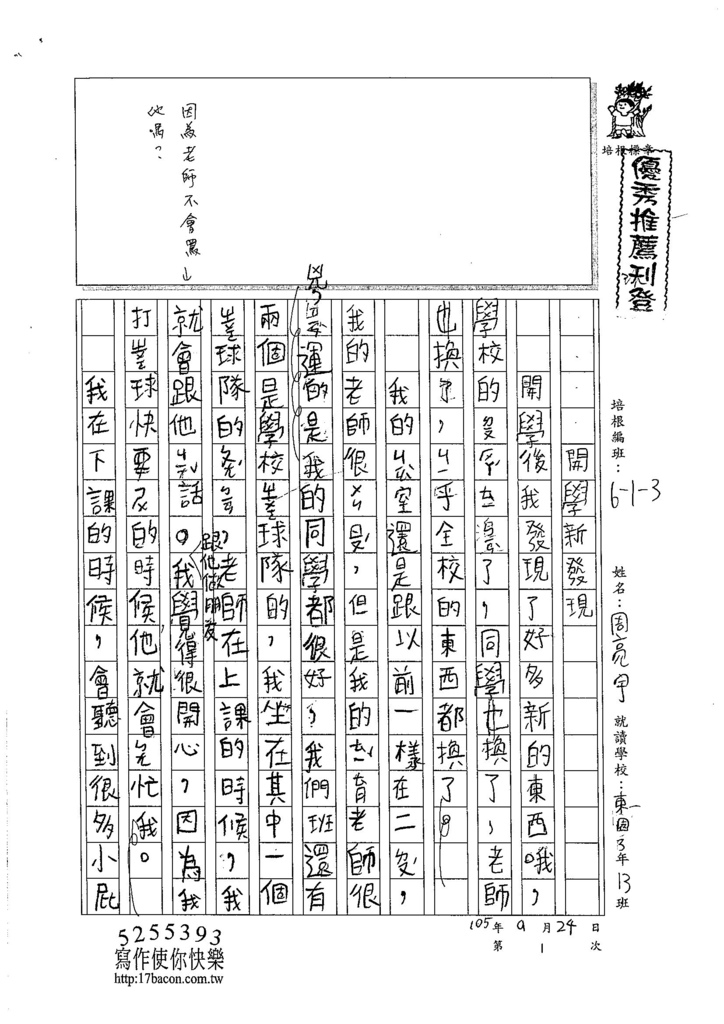 培根標章
優秀推薦刊登
培根編班：6-1-3 姓名：周亮 就讀學校：東園3年13班
因為老師不會罵
他嗎？
開學新發現
開學後我發現了好多新的東西哦，
學校的了，同學也換了，老師，
也換了，乎全校的東西都換了
我的室還是跟以前一樣在二
我的老師很，但是我的育老師很
兇
運的是我的同學都很好，我們班還有
兩個是學校球隊的，我坐在其中一個
球隊的，老師在上課的時候，我
就會跟他話。我學見得很開心，因為我
跟他做朋友
打球快要的時候他就會忙我。
我在下課的時候，會聽到很多小屁
105年9月24日
第1次
5255393
寫作使你快樂
http:17bacon.com.tw